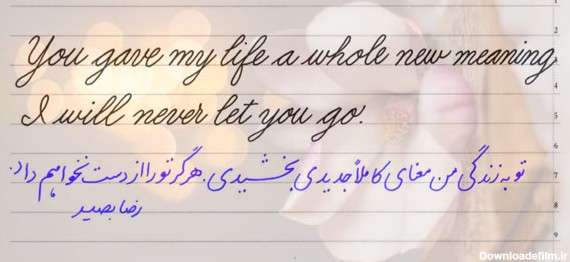 You gave my life a whole new meaning.
I will never let you go.
تو به زندگی من معنای کاملاً جدیدی بخشیدی. هرگز تو را از دست نخواهم داد.
رضا بصیر
1
2
3
4
5
6
7
8
9
Downloadefilm.ir